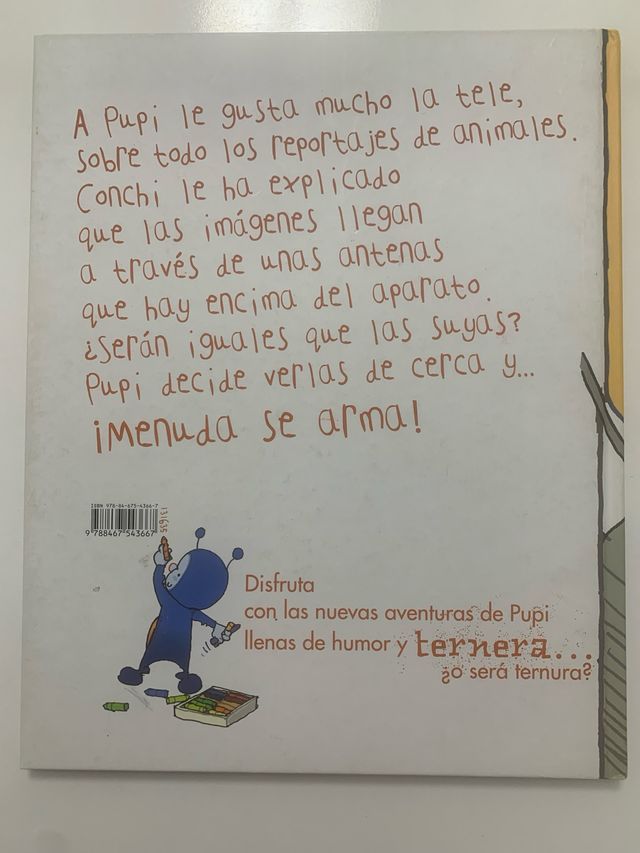 A Pupi le gusta mucho la tele,
sobre todo los reportajes de animales.
Conchi le ha explicado
que las imágenes llegan
a través de unas antenas
que hay encima del aparato.
¿Serán iguales que las suyas?
Pupi decide verlas de cerca y...
¡MENUDA SE ARMA!
ISBN 978-84-675-4366-7
9 788467 543667
131635
Disfruta
con las nuevas aventuras de Pupi
llenas de humor y ternera...
¿o será ternura?